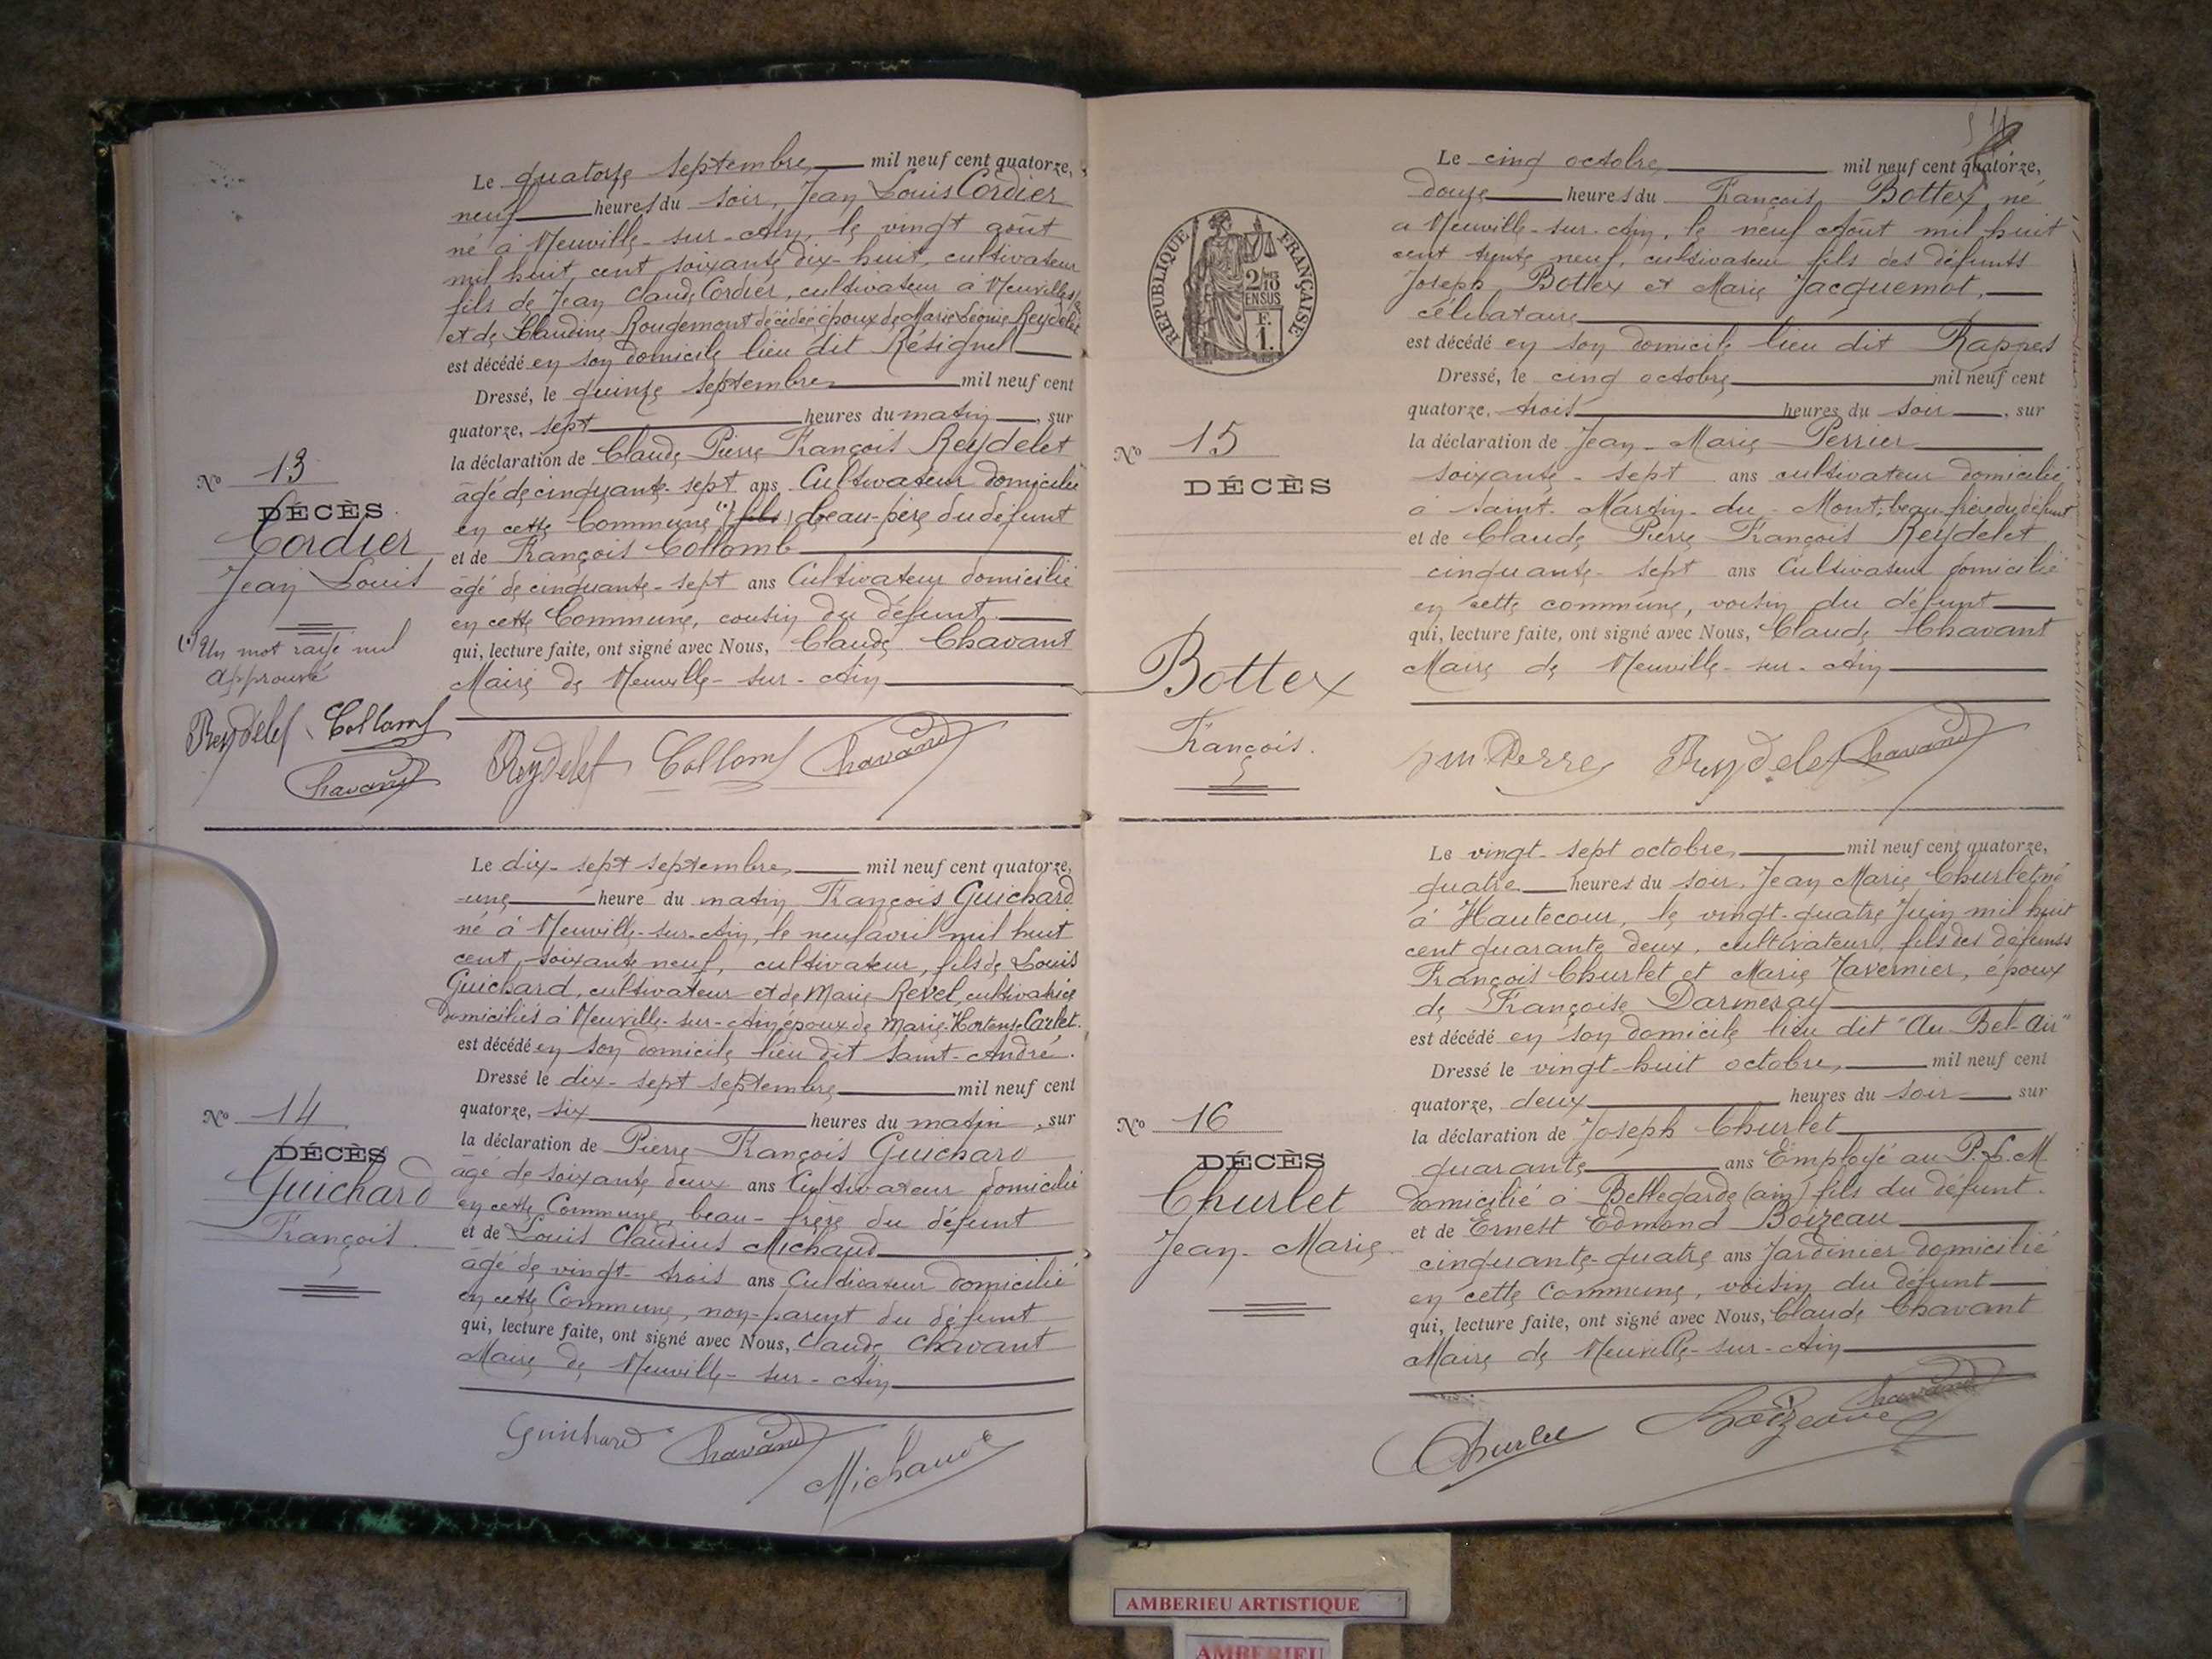 Le quatorze septembre, mil neuf cent quatorze,
neuf heures du soir, Jean Louis Cordier
né à Neuville-sur-Ain, le vingt août
mil huit cent soixante dix-huit, cultivateur
fils de Jean Claude Cordier, cultivateur à Neuville
et de Claudine Rougemont décédée époux de Marie Léonie Reydelet
est décédé en son domicile lieu dit Résignel
Dressé, le quinze septembre mil neuf cent
quatorze, sept heures du matin, sur
la déclaration de Claude Pierre François Reydelet
âgé de cinquante-sept ans Cultivateur domicilié
en cette Commune, (1) fils, beau-père du défunt
et de François Collomb
âgé de cinquante-sept ans Cultivateur domicilié
en cette Commune, cousin du défunt
qui, lecture faite, ont signé avec Nous, Claude Chavant
Maire de Neuville-sur-Ain
Reydelet Collomb Chavand
No 13
DÉCÈS
Cordier
Jean Louis
(1) Un mot rayé nul
approuvé
Reydelet Collomb
Chavand
Le dix-sept septembre, mil neuf cent quatorze,
une heure du matin François Guichard
né à Neuville-sur-Ain, le neuf avril mil huit
cent soixante neuf, cultivateur, fils de Louis
Guichard, cultivateur et de Marie Revel, cultivatrice
domiciliés à Neuville-sur-Ain époux de Marie-Hortense Carlet.
est décédé en son domicile lieu dit Saint-André.
Dressé le dix-sept septembre mil neuf cent
quatorze, six heures du matin, sur
la déclaration de Pierre François Guichard
âgé de soixante deux ans Cultivateur domicilié
en cette Commune, beau-frère du défunt
et de Louis Claudius Michaud
âgé de vingt-trois ans Cultivateur domicilié
en cette Commune, non-parent du défunt
qui, lecture faite, ont signé avec Nous, Claude Chavant
Maire de Neuville-sur-Ain
Guichard Chavand Michaud
No 14
DÉCÈS
Guichard
François
Le cinq octobre, mil neuf cent quatorze,
douze heures du François Bottex, né
a Neuville-sur-Ain, le neuf Août mil huit
cent trente neuf, cultivateur fils des défunts
Joseph Bottex et Marie Jacquemot,
célibataire
est décédé en son domicile lieu dit Rappes
Dressé, le cinq octobre mil neuf cent
quatorze, trois heures du soir, sur
la déclaration de Jean-Marie Perrier
soixante-sept ans cultivateur domicilié
a Saint-Martin-du-Mont, beau-frère du défunt
et de Claude Pierre François Reydelet
cinquante-sept ans Cultivateur domicilié
en cette commune, voisin du défunt
qui, lecture faite, ont signé avec Nous, Claude Chavant
Maire de Neuville-sur-Ain
Reydelet Chavand
RÉPUBLIQUE FRANÇAISE
2/10 EN SUS
F. 1.
No 15
DÉCÈS
Bottex
François.
Le vingt-sept octobre, mil neuf cent quatorze,
quatre heures du soir, Jean Marie Churlet, né
à Hautecour, le vingt-quatre Juin mil huit
cent quarante deux, cultivateur, fils des défunts
François Churlet et Marie Tavernier, époux
de Françoise Darmeray
est décédé en son domicile lieu dit "Au Bel-Air"
Dressé le vingt-huit octobre, mil neuf cent
quatorze, deux heures du soir sur
la déclaration de Joseph Churlet
quarante ans Employé au P.L.M
domicilié à Bellegarde (ain) fils du défunt.
et de Ernest Edmond Boizeau
cinquante-quatre ans Jardinier domicilié
en cette Commune, voisin du défunt
qui, lecture faite, ont signé avec Nous, Claude Chavant
Maire de Neuville-sur-Ain
Churlet Boizeau Chavand
No 16
DÉCÈS
Churlet
Jean-Marie
AMBERIEU ARTISTIQUE
AMBERIEU